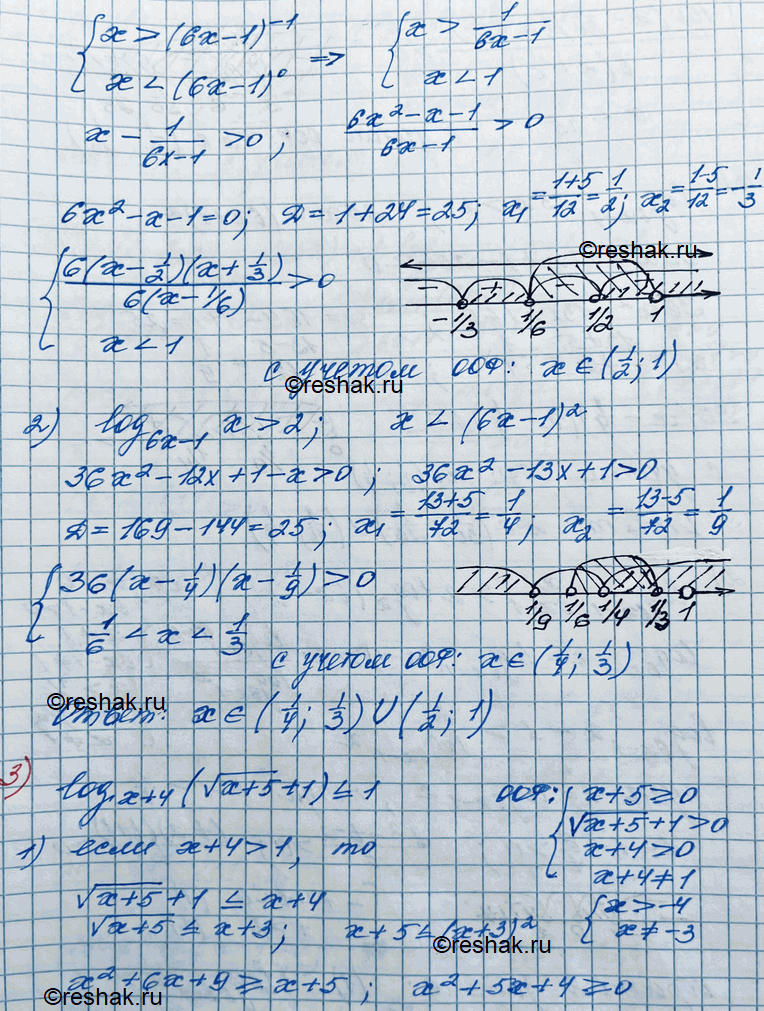 { x > (6x-1)⁻¹ ⇒ { x > 1/(6x-1)
x < (6x-1)⁰ x < 1
x - 1/(6x-1) > 0; (6x²-x-1)/(6x-1) > 0
6x²-x-1=0; D=1+24=25; x₁=(1+5)/12=1/2; x₂=(1-5)/12=-1/3
©reshak.ru
{ 6(x-1/2)(x+1/3)/6(x-1/6) > 0
- + - +
-1/3 1/6 1/2 1
x < 1
с учетом ООФ: x ∈ (1/2; 1)
©reshak.ru
2) log₆ₓ₋₁ x > 2; x < (6x-1)²
36x²-12x+1-x>0; 36x²-13x+1>0
D=169-144=25; x₁=(13+5)/72=1/4; x₂=(13-5)/72=1/9
{ 36(x-1/4)(x-1/9)>0
1/9 1/6 1/4 1/3 1
1/6 < x < 1/3
с учетом ООФ: x ∈ (1/4; 1/3)
©reshak.ru
Ответ: x ∈ (1/4; 1/3) ∪ (1/2; 1)
3)
log_{x+4} (√(x+5)+1) ≤ 1 ООФ: { x+5 ≥ 0
√(x+5)+1>0
1) если x+4>1, то x+4>0
x+4≠1
√(x+5)+1 ≤ x+4 { x>-4
√(x+5) ≤ x+3; x+5 ≤ (x+3)² x≠-3
©reshak.ru
x²+6x+9 ≥ x+5; x²+5x+4 ≥ 0
©reshak.ru